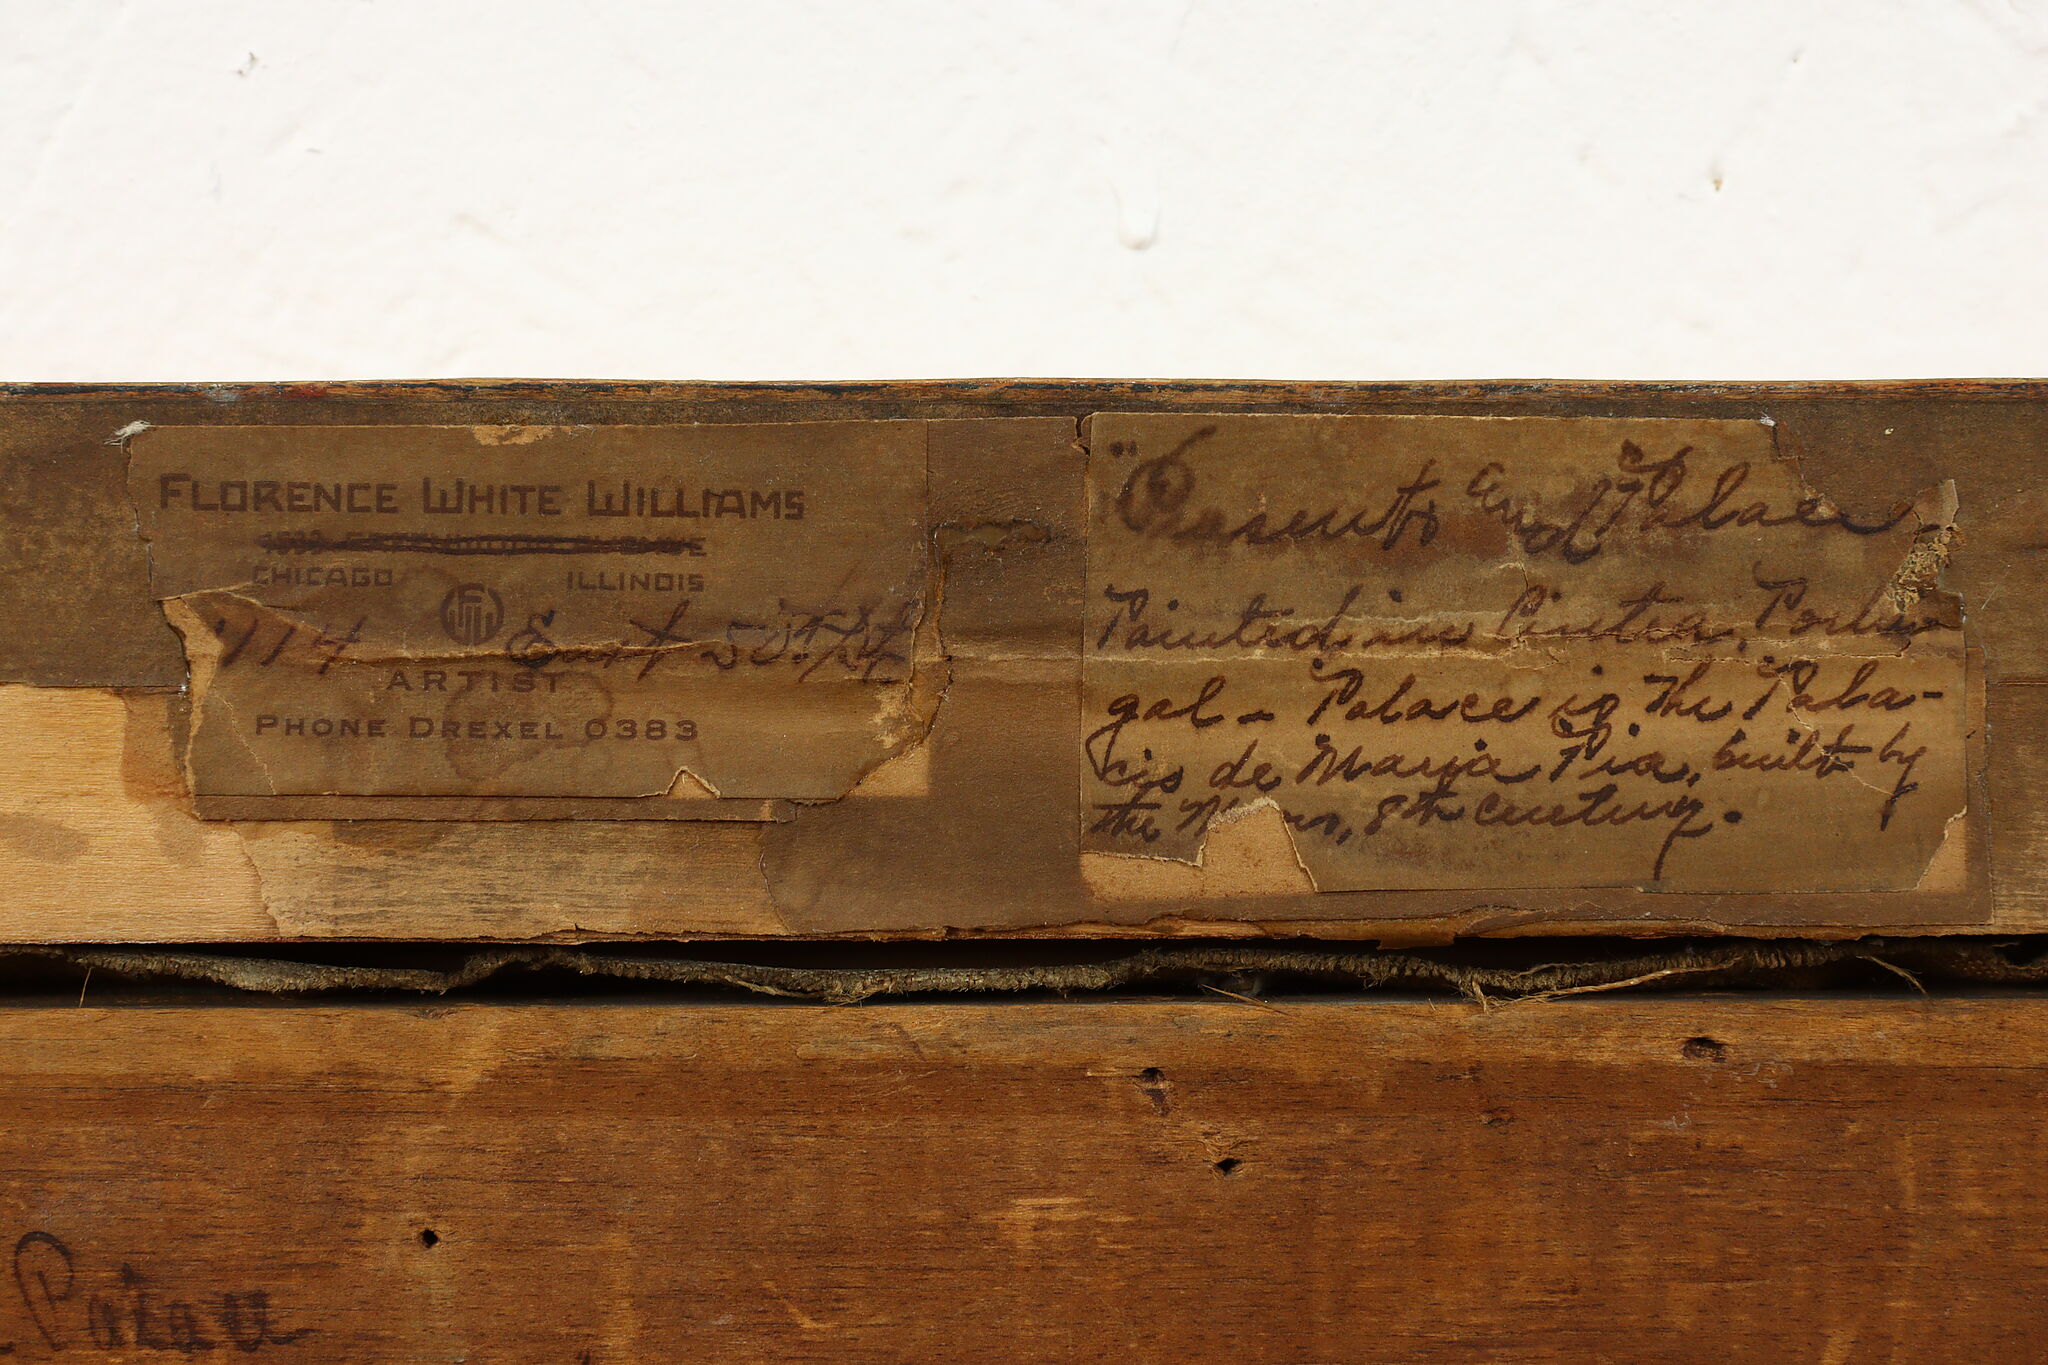 FLORENCE WHITE WILLIAMS
CHICAGO ILLINOIS
1114 East 50th St
ARTIST
PHONE DREXEL 0383
"Peasants and Palace"
Painted in Cintra, Portu-
gal - Palace is the Pala-
cis de Maria Pia, built by
the Moors, 8th century.